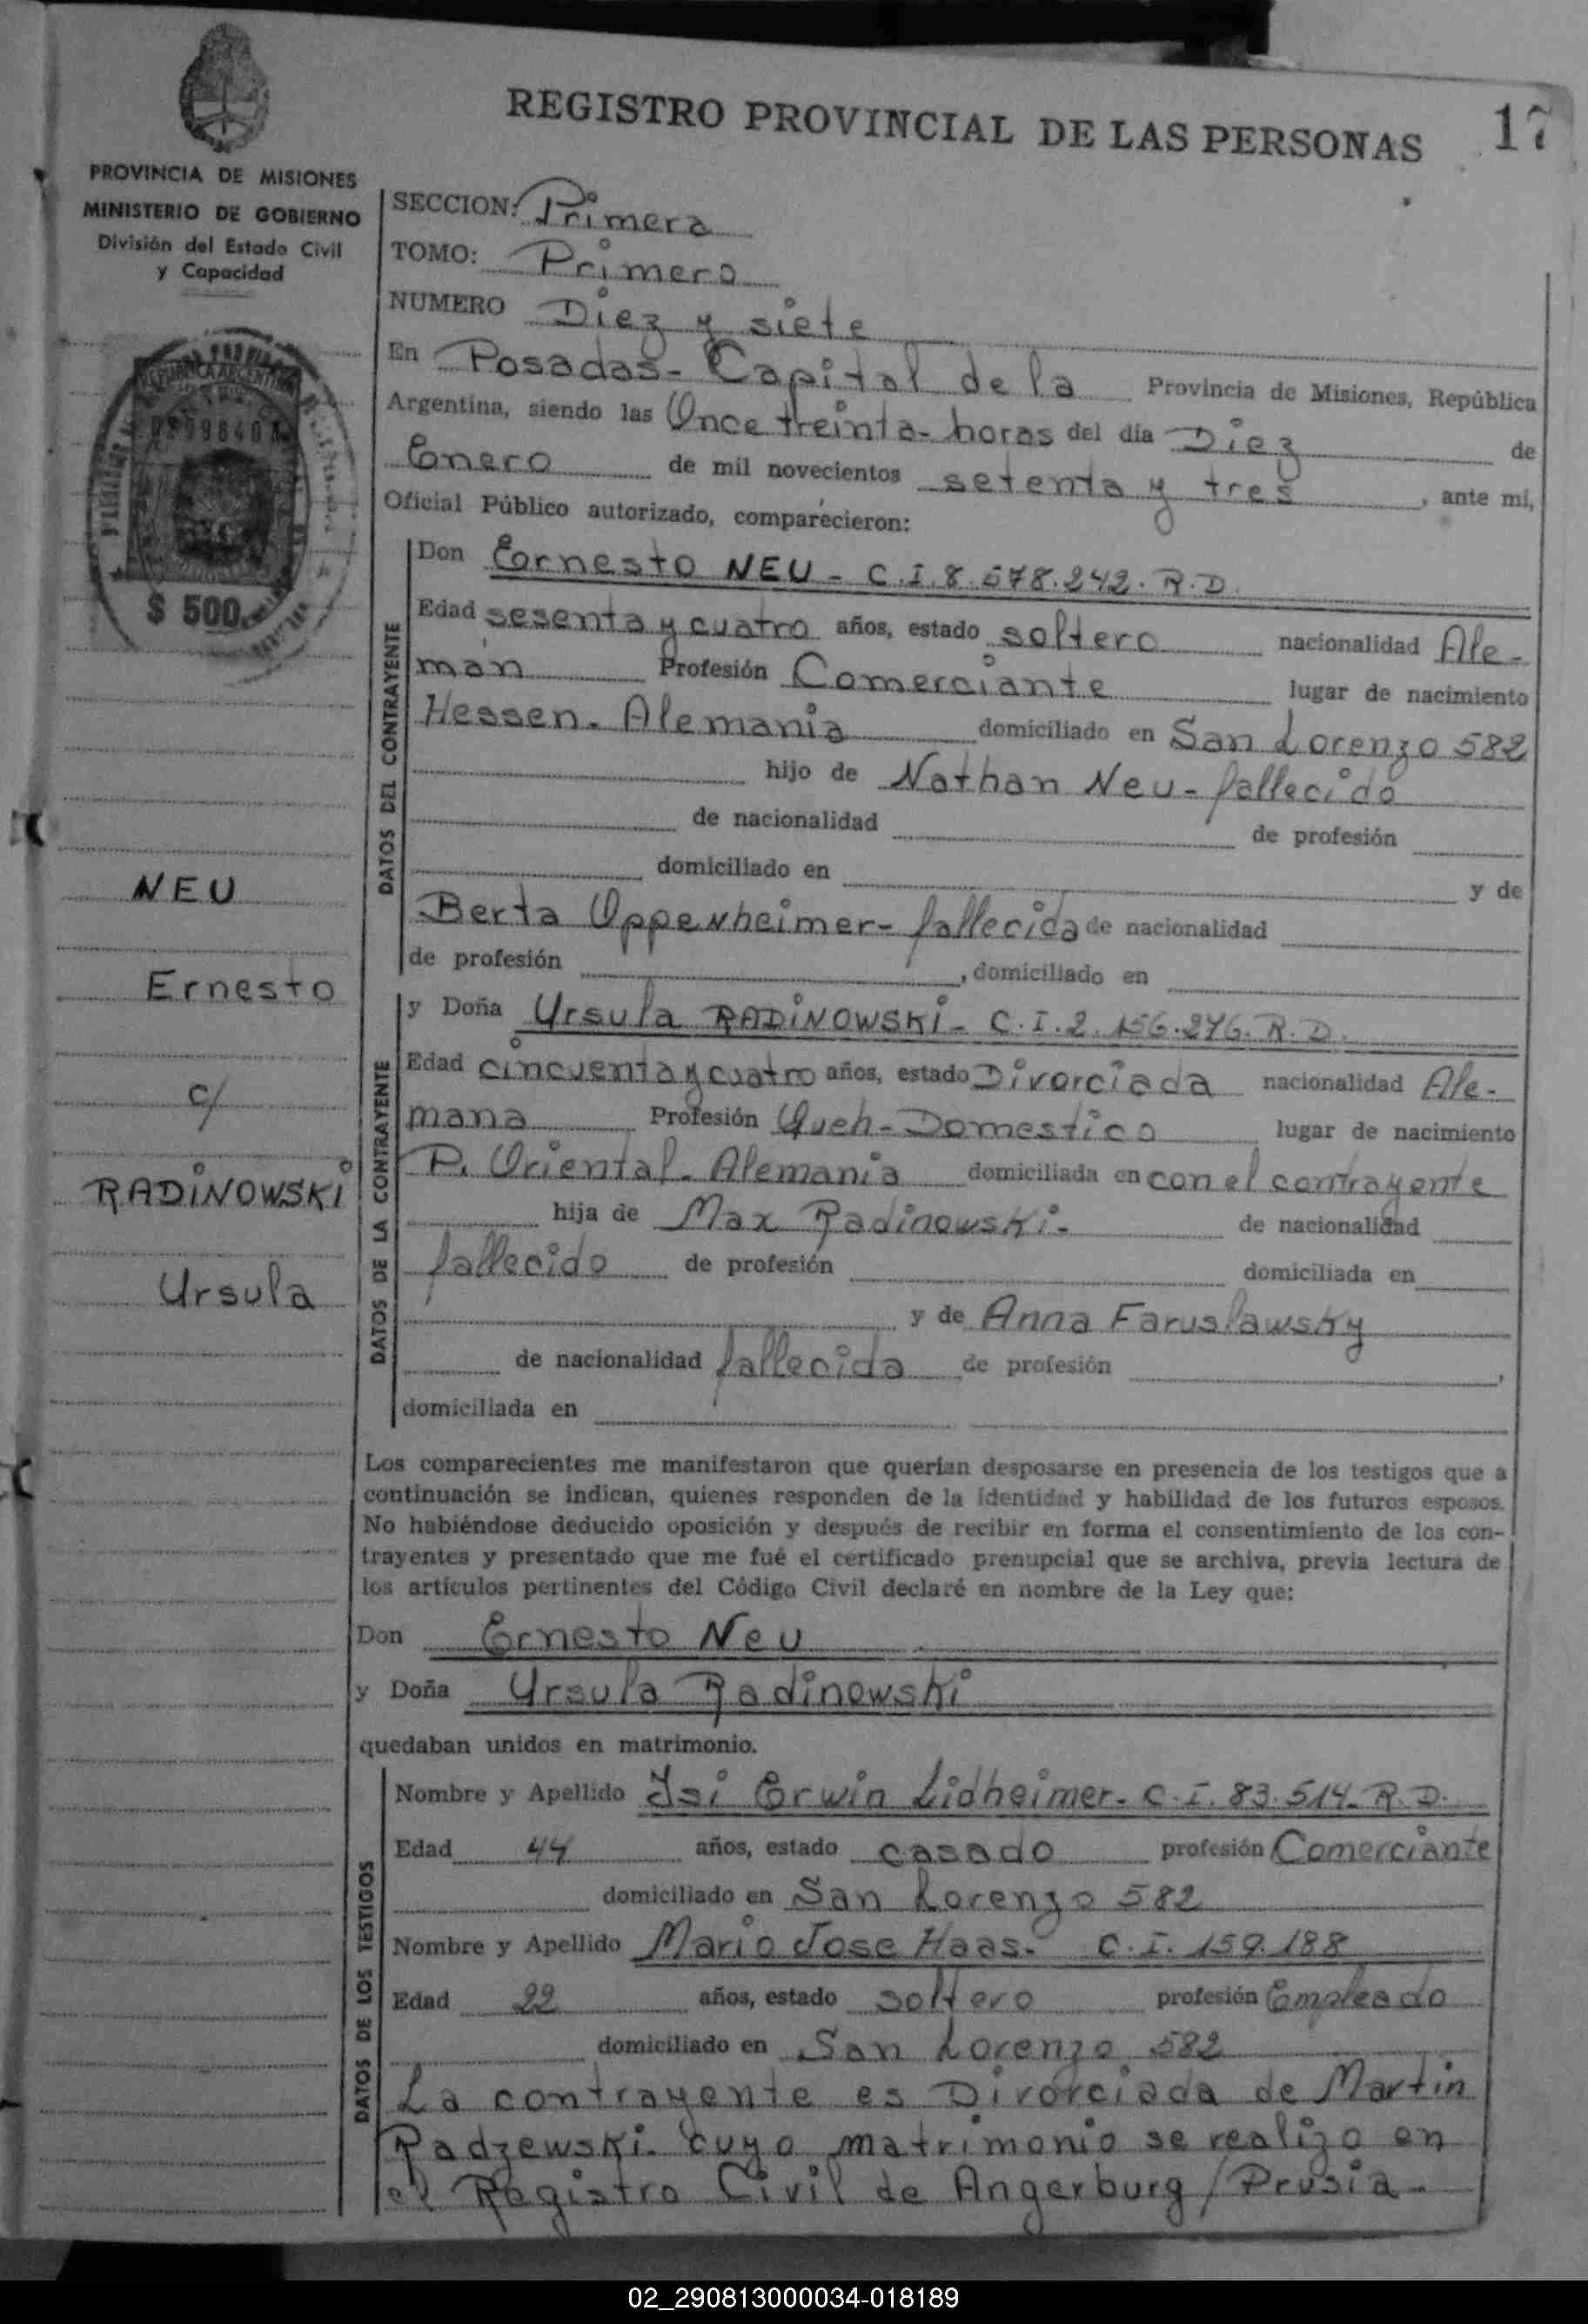 REGISTRO PROVINCIAL DE LAS PERSONAS 17
PROVINCIA DE MISIONES
MINISTERIO DE GOBIERNO
División del Estado Civil
y Capacidad
$ 500
NEU
Ernesto
c/
RADINOWSKI
Ursula
SECCION: Primera
TOMO: Primero
NUMERO Diez y siete
En Posadas - Capital de la Provincia de Misiones, República
Argentina, siendo las Once treinta - horas del día Diez de
Enero de mil novecientos setenta y tres, ante mí,
Oficial Público autorizado, comparecieron:
DATOS DEL CONTRAYENTE
Don Ernesto NEU - C.I. 8.578.242. R.D.
Edad sesenta y cuatro años, estado soltero nacionalidad Ale-
mán Profesión Comerciante lugar de nacimiento
Hessen - Alemania domiciliado en San Lorenzo 582
hijo de Nathan Neu - fallecido
de nacionalidad de profesión
domiciliado en y de
Berta Oppenheimer - fallecida de nacionalidad
de profesión , domiciliado en
DATOS DE LA CONTRAYENTE
y Doña Ursula RADINOWSKI - C.I. 2.156.276. R.D.
Edad cincuenta y cuatro años, estado Divorciada nacionalidad Ale-
mana Profesión Queh - Domestico lugar de nacimiento
P. Oriental - Alemania domiciliada en con el contrayente
hija de Max Radinowski - de nacionalidad
fallecido de profesión domiciliada en
y de Anna Faruslawsky
de nacionalidad fallecida de profesión ,
domiciliada en
Los comparecientes me manifestaron que querían desposarse en presencia de los testigos que a
continuación se indican, quienes responden de la identidad y habilidad de los futuros esposos.
No habiéndose deducido oposición y después de recibir en forma el consentimiento de los con-
trayentes y presentado que me fué el certificado prenupcial que se archiva, previa lectura de
los artículos pertinentes del Código Civil declaré en nombre de la Ley que:
Don Ernesto Neu
y Doña Ursula Radinowski
quedaban unidos en matrimonio.
DATOS DE LOS TESTIGOS
Nombre y Apellido Isi Erwin Lidheimer - C.I. 83.514 - R.D.
Edad 44 años, estado casado profesión Comerciante
domiciliado en San Lorenzo 582
Nombre y Apellido Mario Jose Haas - C.I. 159.188
Edad 22 años, estado soltero profesión Empleado
domiciliado en San Lorenzo 582
La contrayente es Divorciada de Martin
Radzewski - cuyo matrimonio se realizo en
el Registro Civil de Angerburg/Prusia -
02_290813000034-018189